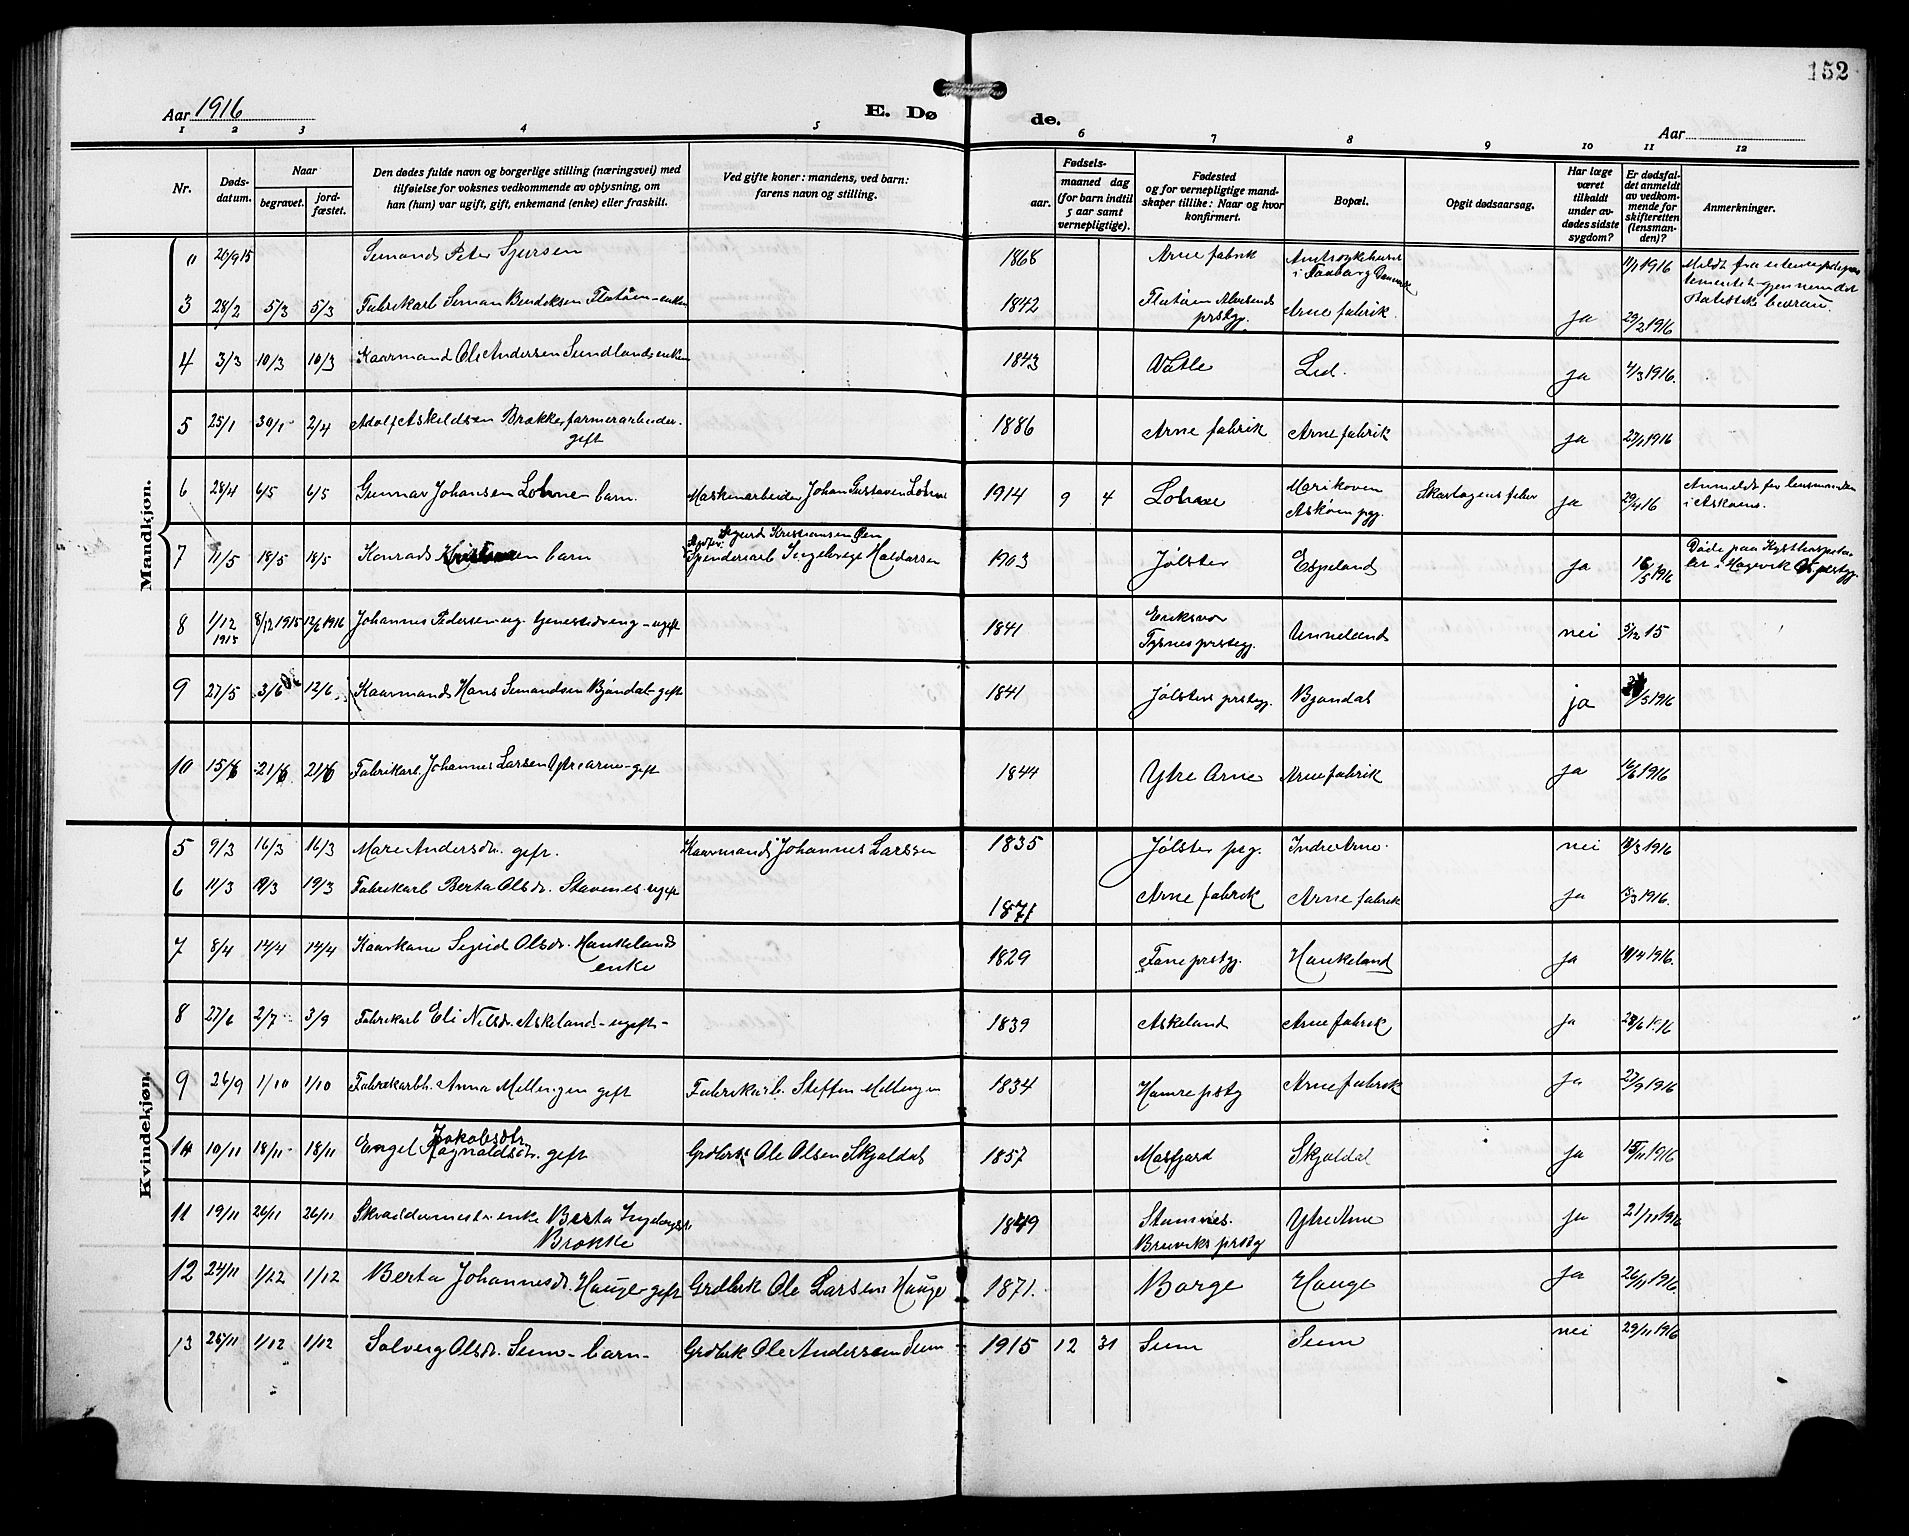 152
Aar 1916
E. Dø
de.
Aar
1 2 3 4 5 6 7 8 9 10 11 12
Nr.
Døds-
datum.
Naar
begravet.
jord-
fæstet.
Den dødes fulde navn og borgerlige stilling (næringsvei) med
tilføielse for voksnes vedkommende av oplysning, om
han (hun) var ugift, gift, enkemand (enke) eller fraskilt.
Ved gifte koner: mandens, ved barn:
farens navn og stilling.
Fødsels-
aar.
maaned dag
(for barn indtil
5 aar samt
vernepligtige).
Fødested
og for vernepligtige mand-
skaper tillike: Naar og hvor
konfirmert.
Bopæl.
Opgit dødsaarsag.
Har læge
været
tilkaldt
under av-
dødes sidste
sygdom?
Er dødsfal-
det anmeldt
av vedkom-
mende for
skifteretten
(lensman-
den)?
Anmerkninger.
Mandkjøn.
" 26/9 15 Sømand Peter Sjursen 1868 Arne fabrik Amtssykehuset i Faaborg Danmark 11/1 1916
3 28/2 5/3 5/3 Fabrikarb Simon Bendiksen Flatøen - enkem 1842 Flatøen Alversund prstgj. Arne fabrik. ja 29/2 1916
4 3/3 10/3 10/3 Kaarmand Ole Andersen Sundland enkem 1843 Vatle Lid. ja 4/3 1916.
5 25/1 30/1 2/4 Adolf Askildsen Brække farmerarbeider. gift 1886 Arne fabrik Arne fabrik ja 27/1 1916
6 28/4 6/5 6/5 Gunnar Johansen Lohne barn. Maskinarbeider Johan Gustavsen Lohne 1914 9 4 Lohne Marikoven Askøen pgj. Skarlagensfeber ja 29/4 16 Anmeldt for lensmanden i Askøen.
7 11/5 18/5 18/5 Konrad barn Sigurd Kristiansen Øen Spinderiarb Ingeborg Haldorsen 1903 Jølster Espeland ja 16/5 1916 Døde paa Kysthospitalet i Hagevik Os prstgj.
8 1/12 1915 8/12 1915 12/6 1916 Johannes Pedersen - ugift 1841 Tysnes prstegj. Unneland nei 5/12 15
9 27/5 3/6 12/6 Kaarmand Hans Simondsen Bjøndal - gift 1841 Jølster prstegj. Bjøndal ja /5 1916
10 15/6 21/6 21/6 Fabrikarb. Johannes Larsen Ytrearne - gift 1844 Ytre Arne Arne fabrik ja 16/6 1916
Kvindekjøn.
5 9/3 16/3 16/3 Mari Andersdr. gift. Kaarmand Johannes Larssen 1835 Jølster psg. Indre Arne. nei /3 1916
6 11/3 19/3 19/3 Fabrikarb Berta Olsdr. Stavenes. ugift 1871 Arne fabrik Arne fabrik ja 13/3 1916.
7 8/4 14/4 14/4 Kaarkone Sigrid Olsdr. Haukeland enke 1829 Fane prstgj. Haukeland ja 10/4 1916.
8 27/6 2/7 3/9 Fabrikarb Eli Nilsdr. Askeland - ugift - 1839 Askeland Arne fabrik ja 28/6 1916
9 26/9 1/10 1/10 Fabrikarbh. Anna Mellingen gift Fabrikarb. Steffen Mellingen 1834 Hamre pstg Arne fabrik ja 27/9 1916
10 10/11 18/11 18/11 Engel Jakobsdtr Ragnaldsdr. gift Grdbrk Ole Olsen Skjoldal 1857 Masfjord Skjoldal ja 15/11 1916
11 19/11 26/11 26/11 Skræddermester enke Berta Ingeborgstr Brække 1849 Stamnes. Bruviks prstg Ytre Arne ja 21/11 1916
12 24/11 1/12 1/12 Berta Johannesdr. Hauge - gift Grdbrk Ole Larsen Hauge 1871. Borge Hauge ja 26/11 1916
13 26/11 1/12 1/12 Solveig Olsdr. Seim - barn - Grdbrk Ole Andersen Seim 1915 12 31 Seim Seim nei 29/11 1916